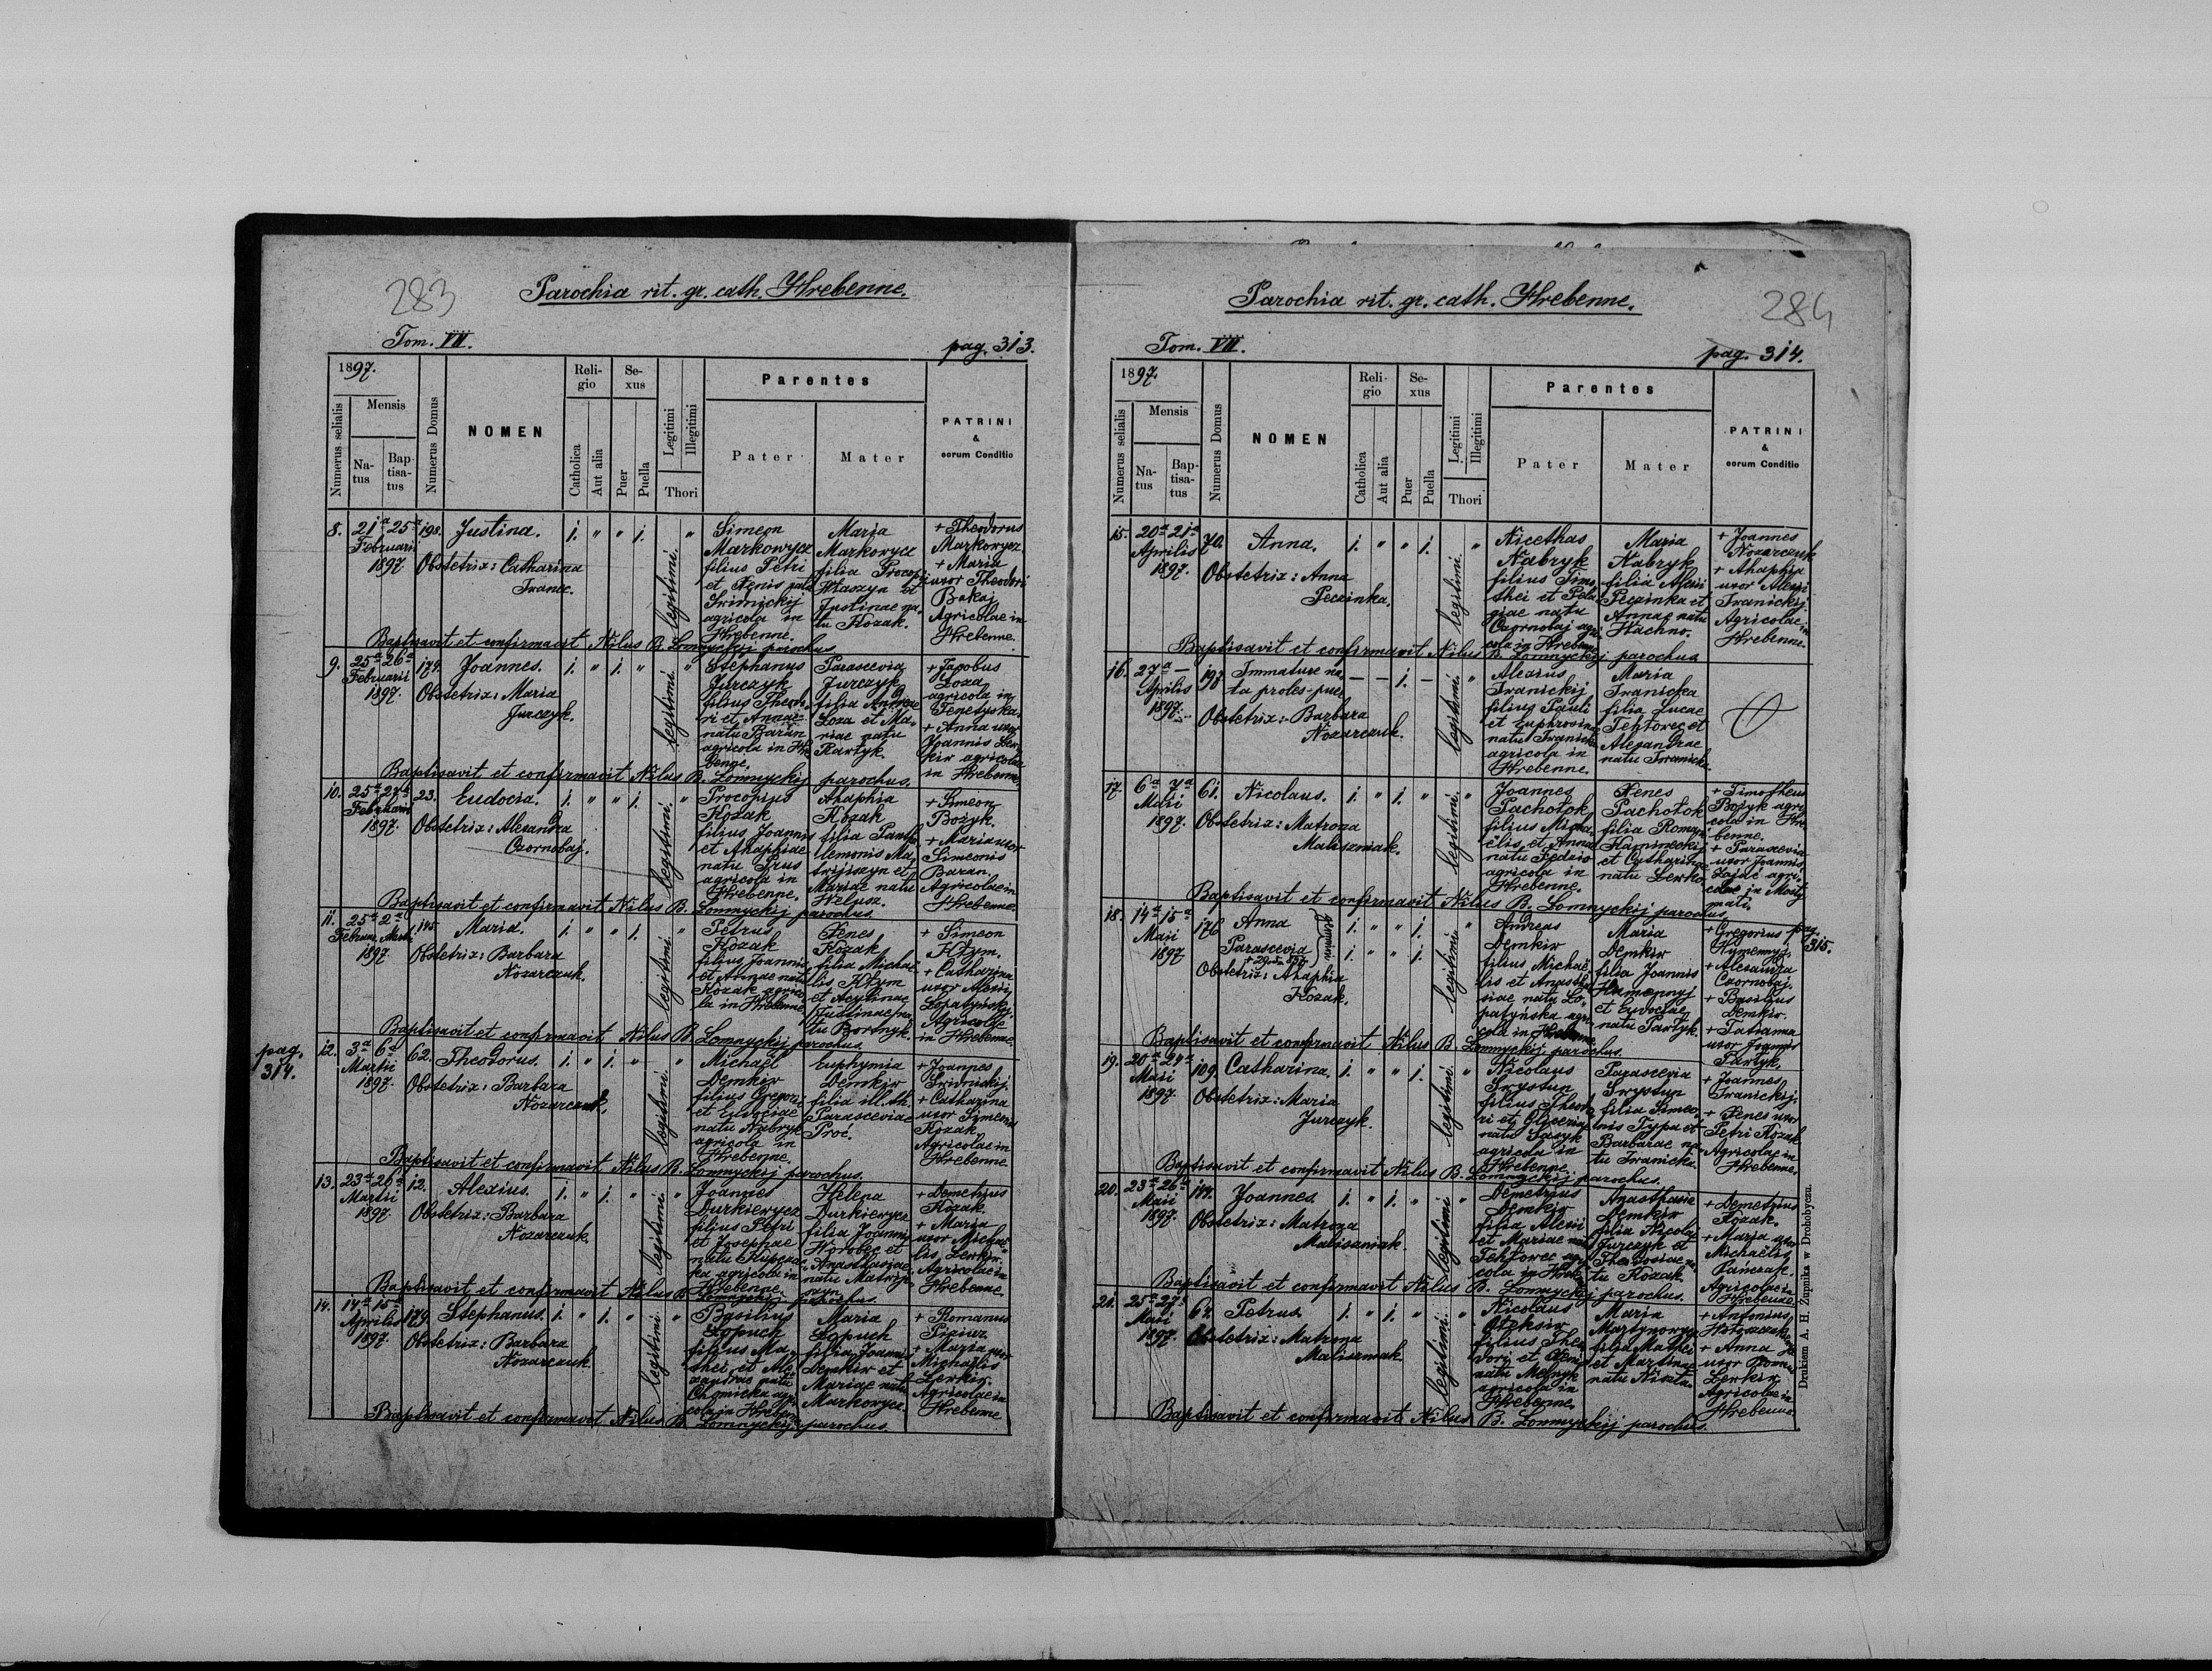 283
Parochia rit. gr. cath. Hrebenne.
Tom. VII.
pag. 313.
1897.
Numerus serialis
Mensis
Natus
Baptisatus
Numerus Domus
NOMEN
Religio
Catholica
Aut alia
Sexus
Puer
Puella
Legitimi
Illegitimi
Thori
Parentes
Pater
Mater
PATRINI
&
eorum Conditio
8. 21a 25a Februarii 1897 198. Justina. 1. " " 1. legitimi. "
Obstetrix: Catharina
Simeon
Markowycz
filius Petri
et
agricola in
Hrebenne.
Maria
Markowycz
filia
Justinae na-
tu Kozak.
+ Theodorus
Markowycz.
+ Maria
uxor Theodori
Bakaj
Agricolae in
Hrebenne.
Baptisavit et confirmavit Nilus B. Lomnyckij parochus
9. 25a 26a Februarii 1897 174. Joannes. 1. " 1. " legitimi. "
Obstetrix: Maria
Jurczyk.
Stephanus
Jurczyk
filius Theodo-
ri et Annae
natu Baran
agricola in Hre-
benne.
Parascevia
Jurczyk
filia Andreae
Loza et Ma-
riae natu
+ Jacobus
Loza
agricola in
+ Anna uxor
Joannis Ler-
kiw agricolae
in Hrebenne.
Baptisavit et confirmavit Nilus B. Lomnyckij parochus.
10. 25a 27a Februarii 1897. 23. Eudocia. 1. " " 1. legitimi. "
Obstetrix: Alexandra
Czornobaj.
Procopius
Kozak
filius Joannis
et Ahaphiae
natu
agricola in
Hrebenne.
Ahaphia
Kozak
filia Pante-
lemonis Ma-
trijiszyn et
Mariae natu
+ Simeon
Bożyk.
+ Maria uxor
Simeonis
Baran.
Agricolae in
Hrebenne.
Baptisavit et confirmavit Nilus B. Lomnyckij parochus.
11. 25a Februar. 2a Martii 1897 145. Maria. 1. " " 1. legitimi. "
Obstetrix: Barbara
Nozarczuk.
Petrus
Kozak
filius Joannis
et Annae natu
Kozak agrico-
la in Hrebenne
Xenes
Kozak
filia Michaë-
lis
+ Simeon
+ Catharina
uxor Alexii
Agricolae
in Hrebenne.
Baptisavit et confirmavit Nilus B. Lomnyckij parochus.
pag.
314.
12. 3a 6a Martii 1897. 62. Theodorus. 1. " 1. " legitimi. "
Obstetrix: Barbara
Nozarczuk.
Michaël
Demkiw
filius Gregorii
et Eudociae
natu Nabryk
agricola in
Hrebenne.
Euphymia
Demkiw
filia ill. th.
Parasceviae
Proć.
+ Joannes
+ Catharina
uxor Simeonis
Kozak.
Agricolae in
Hrebenne.
Baptisavit et confirmavit Nilus B. Lomnyckij parochus.
13. 23a 26a Martii 1897. 12. Alexius. 1. " 1. " legitimi. "
Obstetrix: Barbara
Nozarczuk.
Joannes
Durkiewycz
filius Petri
et Josephae
natu
agricola in
Hrebenne.
Helena
Durkiewycz
filia Joannis
Worobec et
Anasthasiae
+ Demetrius
Kozak.
+ Maria
uxor Michaë-
lis Lerkiw.
Agricolae in
Hrebenne.
Baptisavit et confirmavit Nilus B. Lomnyckij parochus.
14. 14a 15a Aprilis 1897 179. Stephanus. 1. " 1. " legitimi. "
Obstetrix: Barbara
Nozarczuk.
Basilius
Lopuch
filius Ma-
thei et Ale-
xandrae natu
Chomicka agri-
cola in Hrebenne
Maria
Lopuch
filia Joannis
Demkiw et
Mariae natu
Markowycz.
+ Romanus
+ Maria uxor
Michaëlis
Lerkiw.
Agricolae in
Hrebenne
Baptisavit et confirmavit Nilus B. Lomnyckij parochus.
284
Parochia rit. gr. cath. Hrebenne.
Tom. VII.
pag. 314.
1897.
Numerus serialis
Mensis
Natus
Baptisatus
Numerus Domus
NOMEN
Religio
Catholica
Aut alia
Sexus
Puer
Puella
Legitimi
Illegitimi
Thori
Parentes
Pater
Mater
PATRINI
&
eorum Conditio
15. 20a 21a Aprilis 1897. 70. Anna. 1. " " 1. legitimi. "
Obstetrix: Anna
Peczinka.
Nicethas
Nabryk
filius Timo-
thei et Pela-
giae natu
Czornobaj agri-
cola in Hrebenne
Maria
Nabryk
filia Alexii
Peczinka et
Annae natu
Hachno.
+ Joannes
Nozarczuk
+ Ahaphia
uxor Alexii
Iranickij.
Agricolae in
Hrebenne.
Baptisavit et confirmavit Nilus B. Lomnyckij parochus
16. 27a — Aprilis 1897. 193 Immature na-
ta proles-puer — — 1. — legitimi. "
Obstetrix: Barbara
Nozarczuk.
Alexius
Iranickij
filius Pauli
et Euphrosinae
natu Iranicka
agricola in
Hrebenne.
Maria
Iranicka
filia Lucae
Tektorec et
Alexandrae
natu Iranick.
17. 6a 7a Maii 1897. 61. Nicolaus. 1. " 1. " legitimi. "
Obstetrix: Matrona
Maliszniak.
Joannes
Pachołok
filius Micha-
ëlis et Annae
natu
agricola in
Hrebenne.
Xenes
Pachołok
filia Romani
Kamineckij
et Catharinae
natu Lerko
+ Timotheus
Bożyk agri-
cola in Hre-
benne.
+ Parascevia
uxor Joannis
Zając agri-
colae in
Baptisavit et confirmavit Nilus B. Lomnyckij parochus.
18. 14a 15a Maii 1897 176 Anna
Parascevia gemini 1. " " 1. legitimi. "
1. " " 1.
Obstetrix: Ahaphia
Kozak.
Andreas
Demkiw
filius Michaë-
lis et Anastha-
siae natu Lo-
patyńska agri-
cola in Hrebenne
Maria
Demkiw
filia Joannis
et Eudociae
natu Partyk.
+ Gregorius
+ Alexandra
Czornobaj.
+ Basilius
Demkiw.
+ Tatianna
uxor Joannis
Partyk.
pag.
315.
Baptisavit et confirmavit Nilus B. Lomnyckij parochus.
19. 20a 24a Maii 1897 109. Catharina. 1. " " 1. legitimi. "
Obstetrix: Maria
Jurczyk.
Nicolaus
filius Theodo-
ri et Glyceriae
natu
agricola in
Hrebenne.
Parascevia
filia Simeo-
nis Typa et
Barbarae na-
tu Iranicka.
+ Joannes
Iranickij
+ Xenes uxor
Petri Kozak
Agricolae in
Hrebenne.
Baptisavit et confirmavit Nilus B. Lomnyckij parochus.
20. 23a 26a Maii 1897. 144. Joannes. 1. " 1. " legitimi "
Obstetrix: Matrona
Maliszniak.
Demetrius
Demkiw
filia Alexii
et Mariae natu
Tektorec agri-
cola in
Anasthasia
Demkiw
filia Nicolaj
Jurczyk et
Theodosiae na-
tu Kozak
+ Demetrius
Kozak.
+ Maria uxor
Michaëlis
Pańczak.
Agricolae in
Hrebenne.
Baptisavit et confirmavit Nilus B. Lomnyckij parochus.
21. 25a 27a Maii 1897 67. Petrus. 1. " 1. " legitimi. "
Obstetrix: Matrona
Maliszniak.
Nicolaus
filius Theo-
dori et Xeni
natu Melnyk
agricola in
Hrebenne.
Maria
filia Mathei
et Martinae
+ Antonius
+ Anna
uxor
Lerkiw.
Agricolae in
Hrebenne.
Baptisavit et confirmavit Nilus B. Lomnyckij parochus.
Drukiem A. H. Żupnika w Drohobyczu.